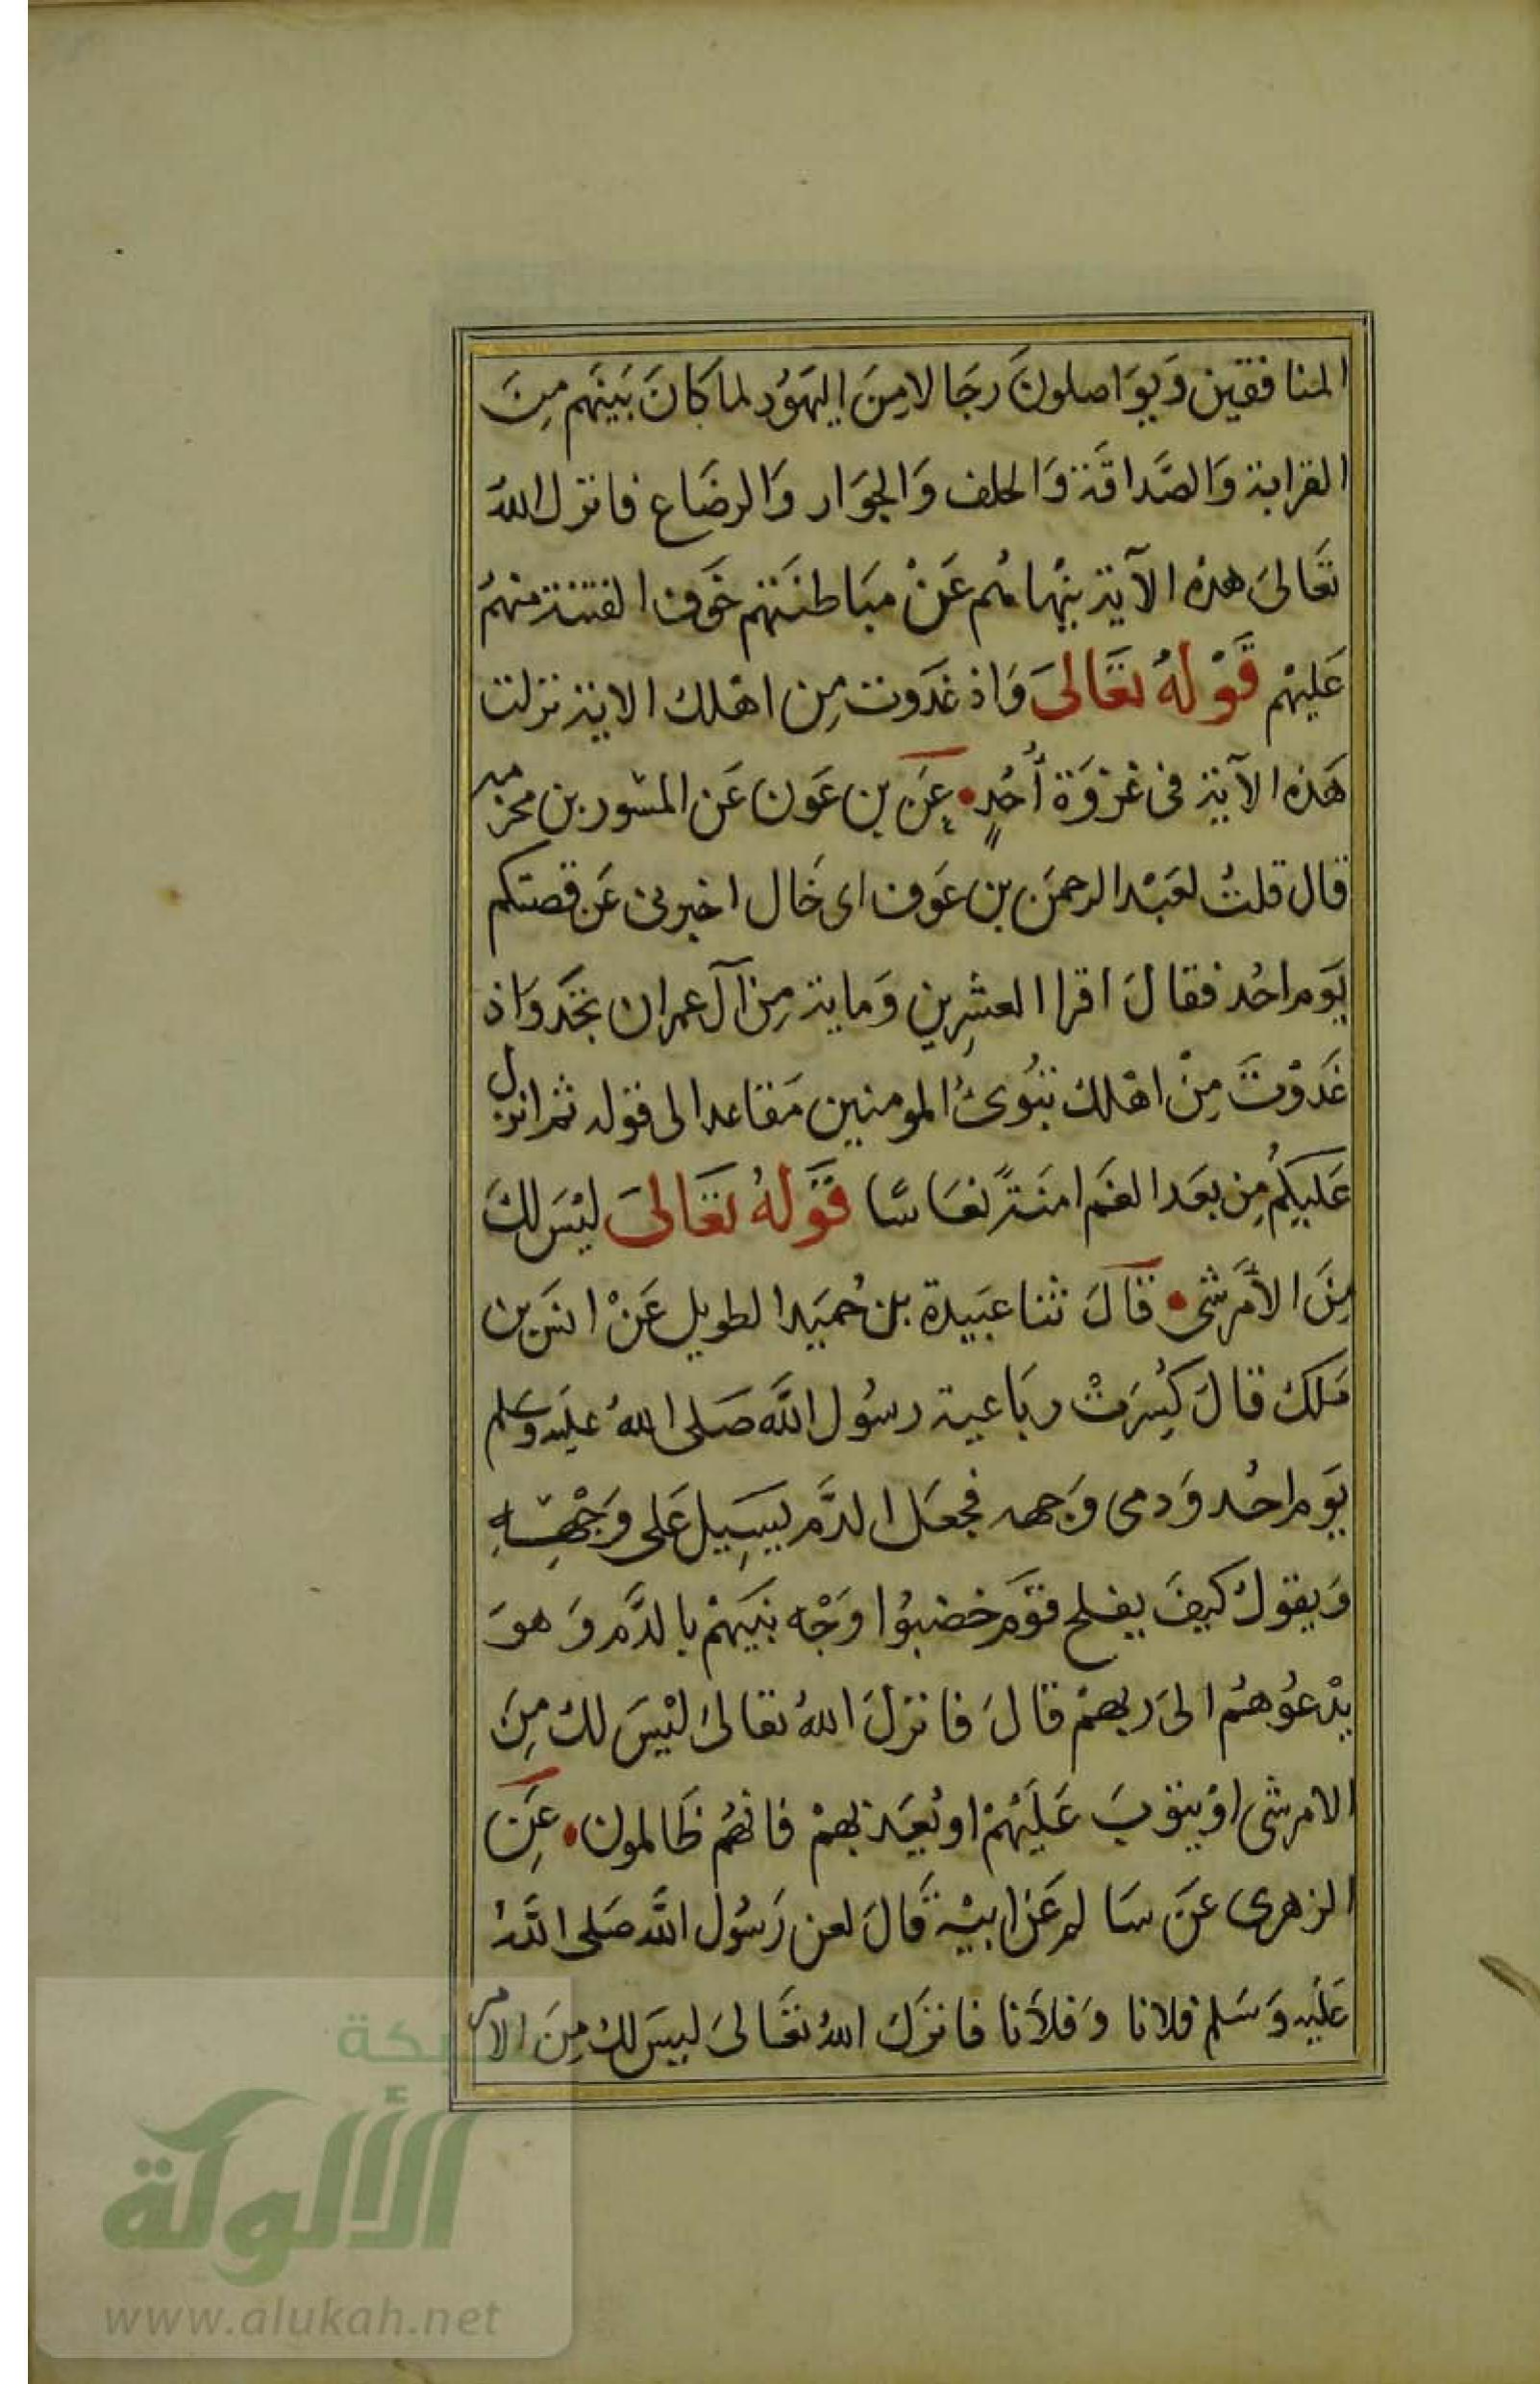 المنافقين وَيوَاصلونَ رجَالا مِنَ اليَهوُد لما كانَ بَينَهم مِنَ
القرابة وَالصَّداقَة وَالحلف وَالجوَار وَالرضَاع فانزل اللهُ
تعَالىَ هذه الآية ينهاهُم عَنْ مبَاطنَتهم خَوف الفتنة منهمُ
عَليْهم قَوْلهُ تعَالىَ وَاذ غدَوت مِن اهْلك الاية نزلت
هَذه الآية فى غزوَة أُحُدٍ عَن بن عَون عَن المسْور بن مخرمه
قال قلتُ لعَبْد الرحمَن بن عَوف اى خَال اخبرنى عَن قصتكم
يَوم احُد فقالَ اقرا العشِرين وَماية مِن آل عمران تجَد وَاذ
غَدَوْتَ مِنْ اهْلك تبُوئُ المومنين مَقاعد الى قوله ثم انزل
عَليكمُ مِن بعَد الغَم امنَةً نعَاسًا قَوْلهُ تعَالىَ ليْسَ لكَ
مِنَ الأمَر شئ قَالَ ثنا عبَيدة بن حُميَد الطويل عَنْ انسَ بن
مَلك قالَ كُسِرَتْ ربَاعية رسُول اللَّه صَلى اللهُ عليَه وَسَلم
يَوم احُد وَدمى وَجهه فجعَل الدَّم يَسِيل عَلى وَجْهِهِ
وَيقولُ كيفَ يفلح قوَم خضبوُا وَجْه نبَيهمْ بالدَّم وَهوَ
يدْعوُهمُ الىَ ربهمْ قالَ فانزلَ اللهُ تعالىَ ليْسَ لكَ مِنَ
الامر شئ اوْ يتوبَ عَليَهْمْ او يُعَذبهمْ فانهُم ظالمون عَن
الزهرى عَنَ سَالم عَن ابيْه قَالَ لعن رَسُول اللَّه صَلى اللَّهُ
عَليْه وَسَلم فلانا وَفلاَنا فانزَل اللهُ تعَالىَ ليسَ لكَ مِنَ الامر
شبكة
الألوكة
www.alukah.net